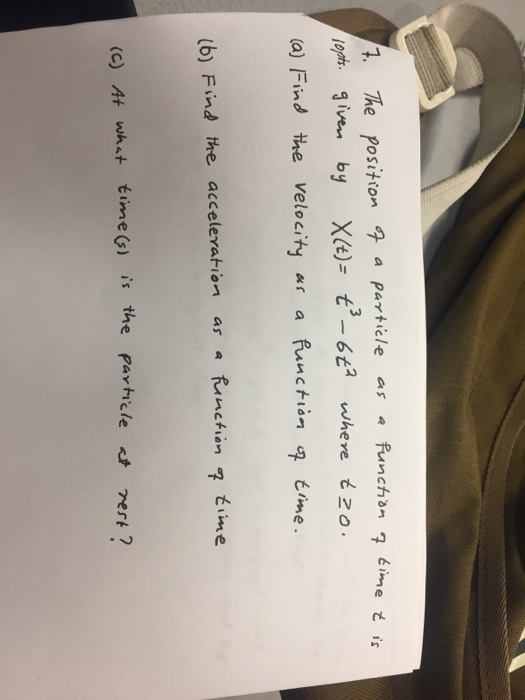 7. The position of a particle as a function of time t is
10pts. given by X(t) = t³ - 6t² where t ≥ 0.
(a) Find the velocity as a function of time.
(b) Find the acceleration as a function of time
(c) At what time(s) is the particle at rest?